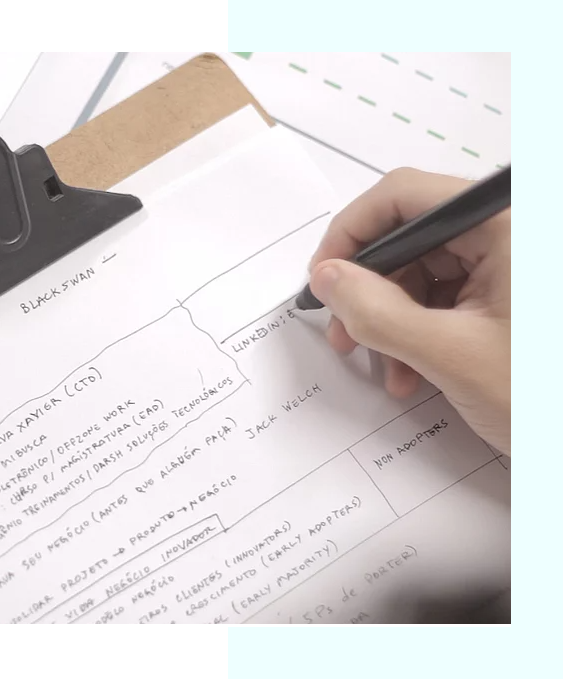 BLACKSWAN
LINKEDIN:
XAVIER (CTO)
MIBUSCA
/ OFFZONE WORK
CURSO P/ MAGISTRATURA (EAD)
TREINAMENTOS / DARSH SOLUÇÕES TECNOLÓGICAS
JACK WELCH
SEU NEGÓCIO (ANTES QUE ALGUÉM FAÇA)
NON ADOPTERS
PROJETO → PRODUTO → NEGÓCIO
VIDA NEGÓCIO INOVADOR
NEGÓCIO
CLIENTES (INNOVATORS)
CRESCIMENTO (EARLY ADOPTERS)
(EARLY MAJORITY)
5 Ps de PORTER)